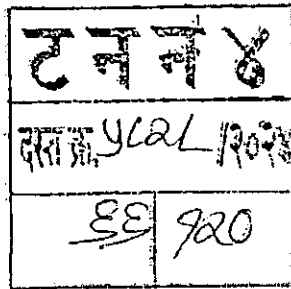 ट न न ४
दस्त क्र. ५८२८ /२०२४
६६ १२०